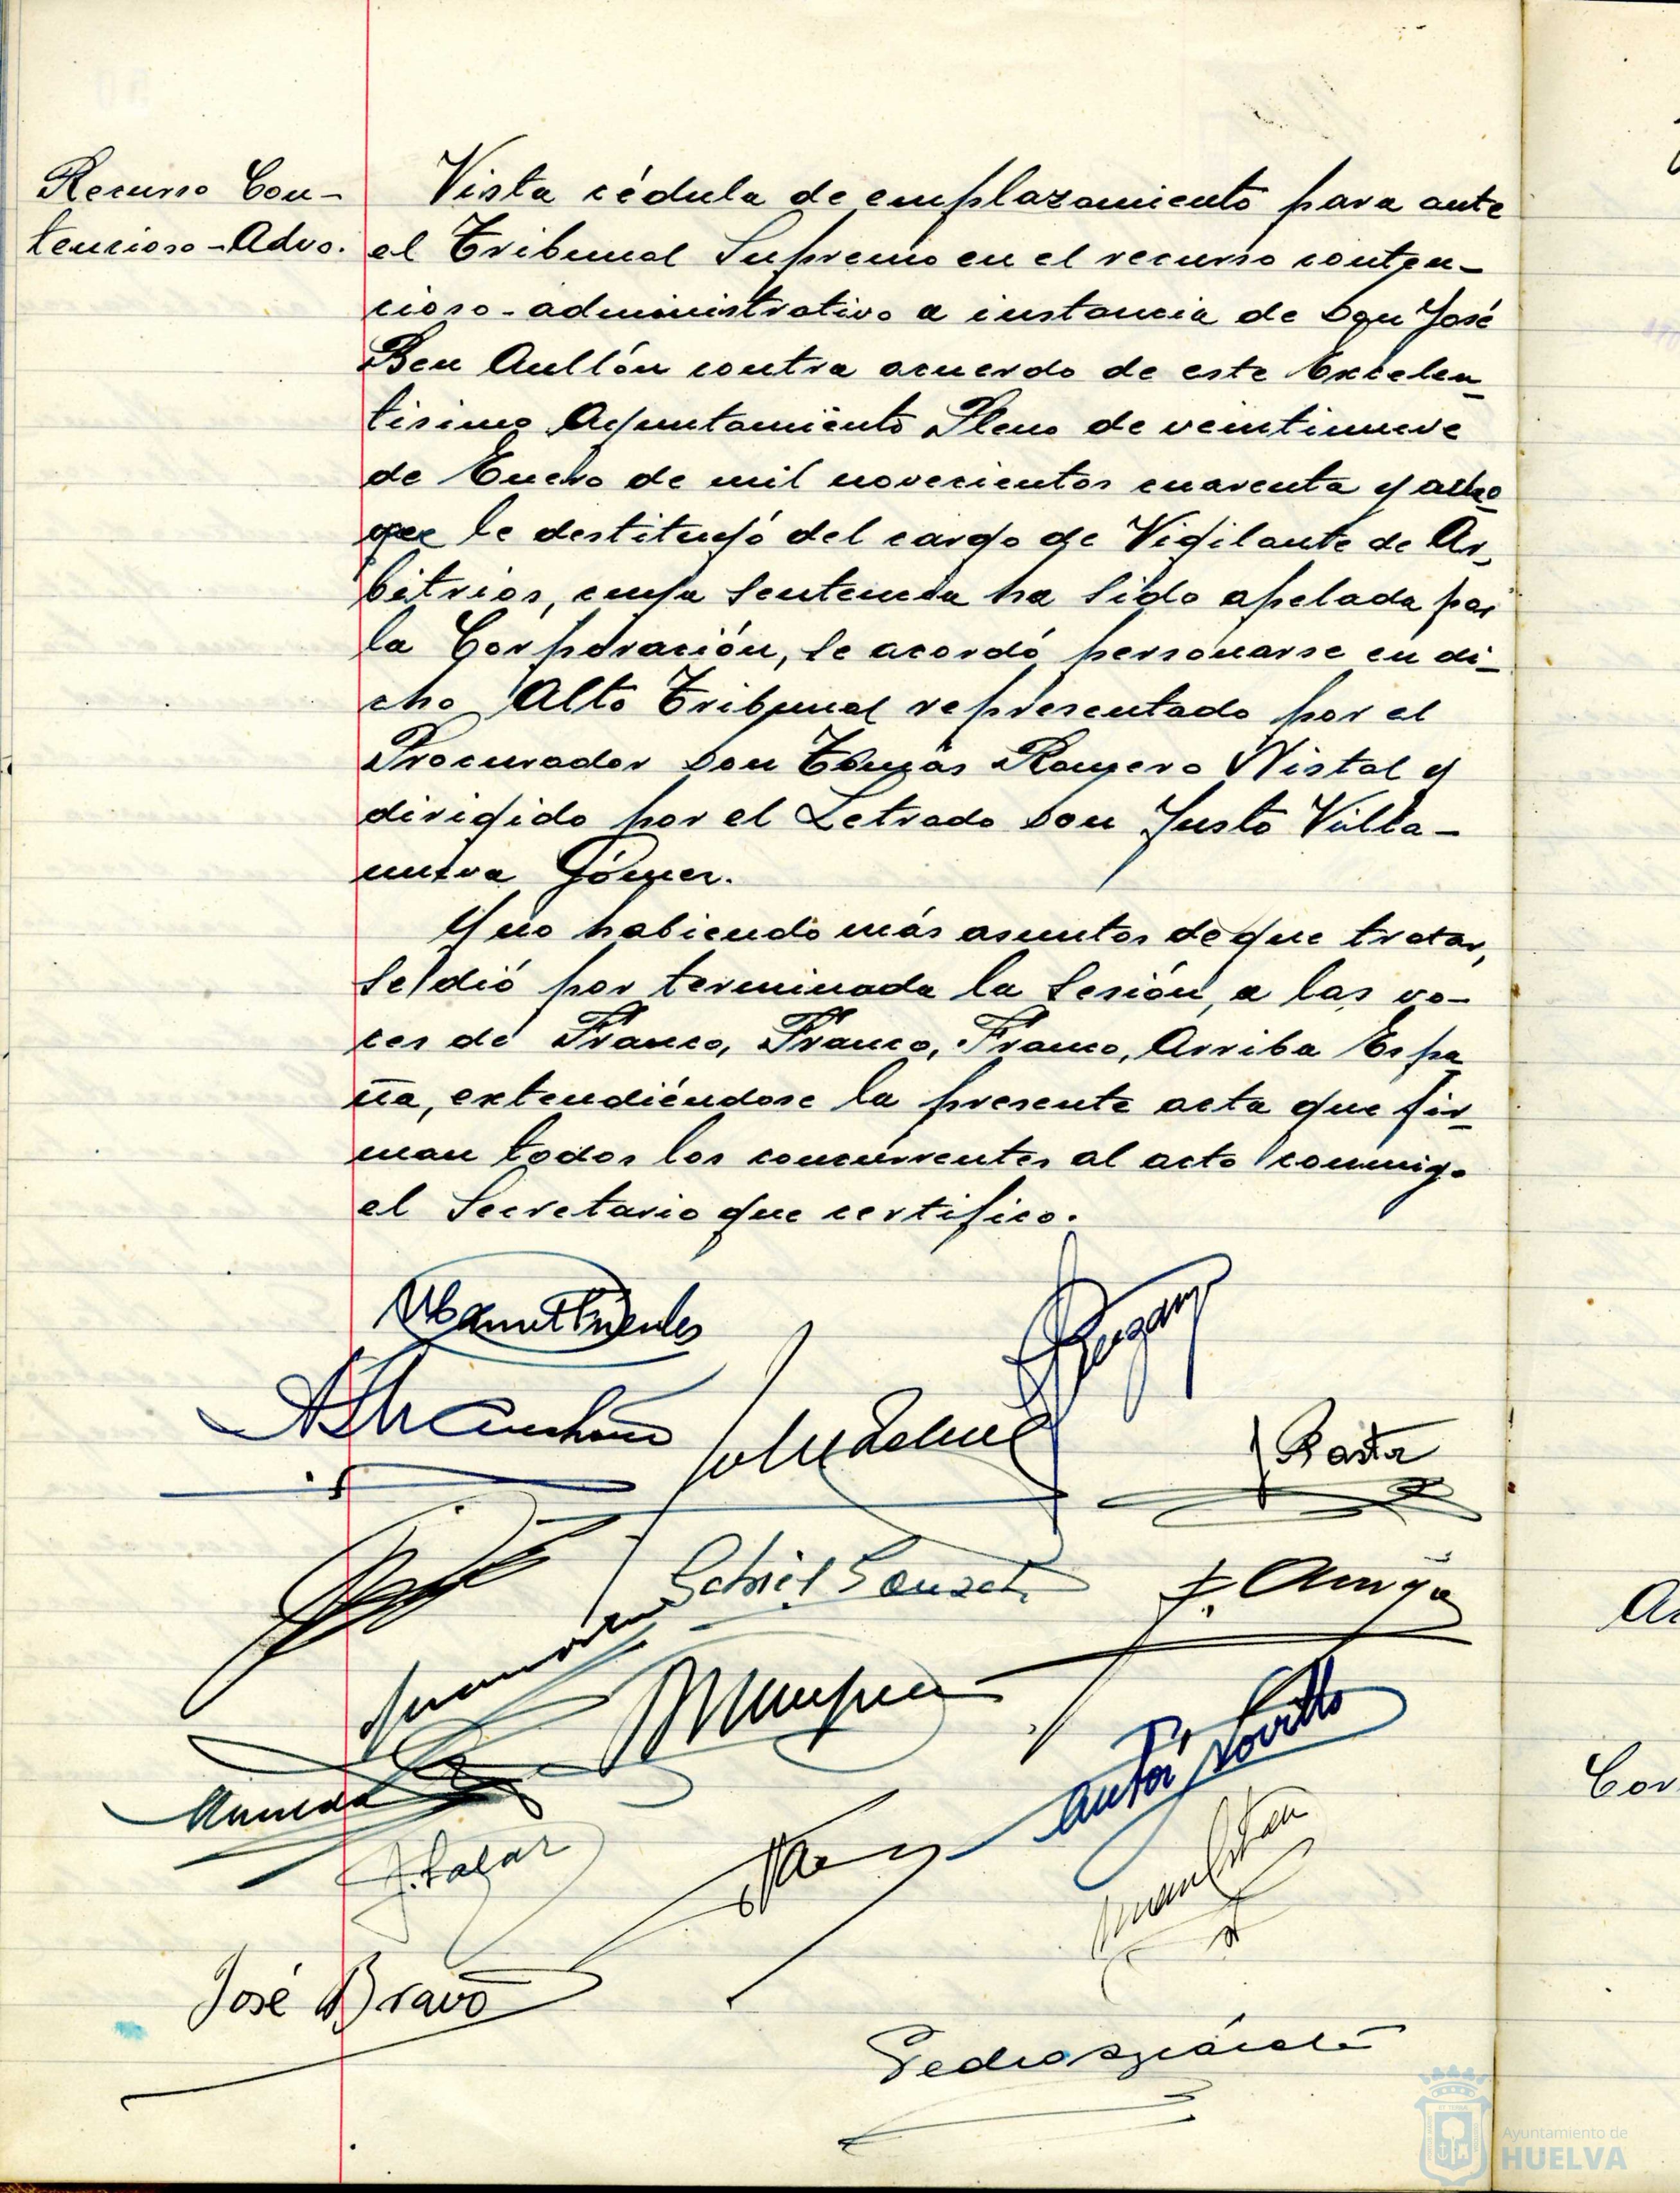 Recurso Con-
tencioso-Advo.
Vista cédula de emplazamiento para ante
el Tribunal Supremo en el recurso conten-
cioso-administrativo a instancia de Don José
Ben Aullón contra acuerdo de este Excelen-
tísimo Ayuntamiento Pleno de veintinueve
de Enero de mil novecientos cuarenta y ocho
que le destituyó del cargo de Vigilante de Ar-
bitrios, cuya sentencia ha sido apelada por
la Corporación, se acordó personarse en di-
cho Alto Tribunal representado por el
Procurador Don Tomás Romero Nistal y
dirigido por el Letrado Don Justo Villa-
nueva Gómez.
Y no habiendo más asuntos de que tratar,
se dió por terminada la sesión, a las vo-
ces de Franco, Franco, Franco, Arriba Espa
ña, extendiéndose la presente acta que fir-
man todos los concurrentes al acto conmigo
el Secretario que certifico.
J. Pastor
José Bravo
Ayuntamiento de
HUELVA